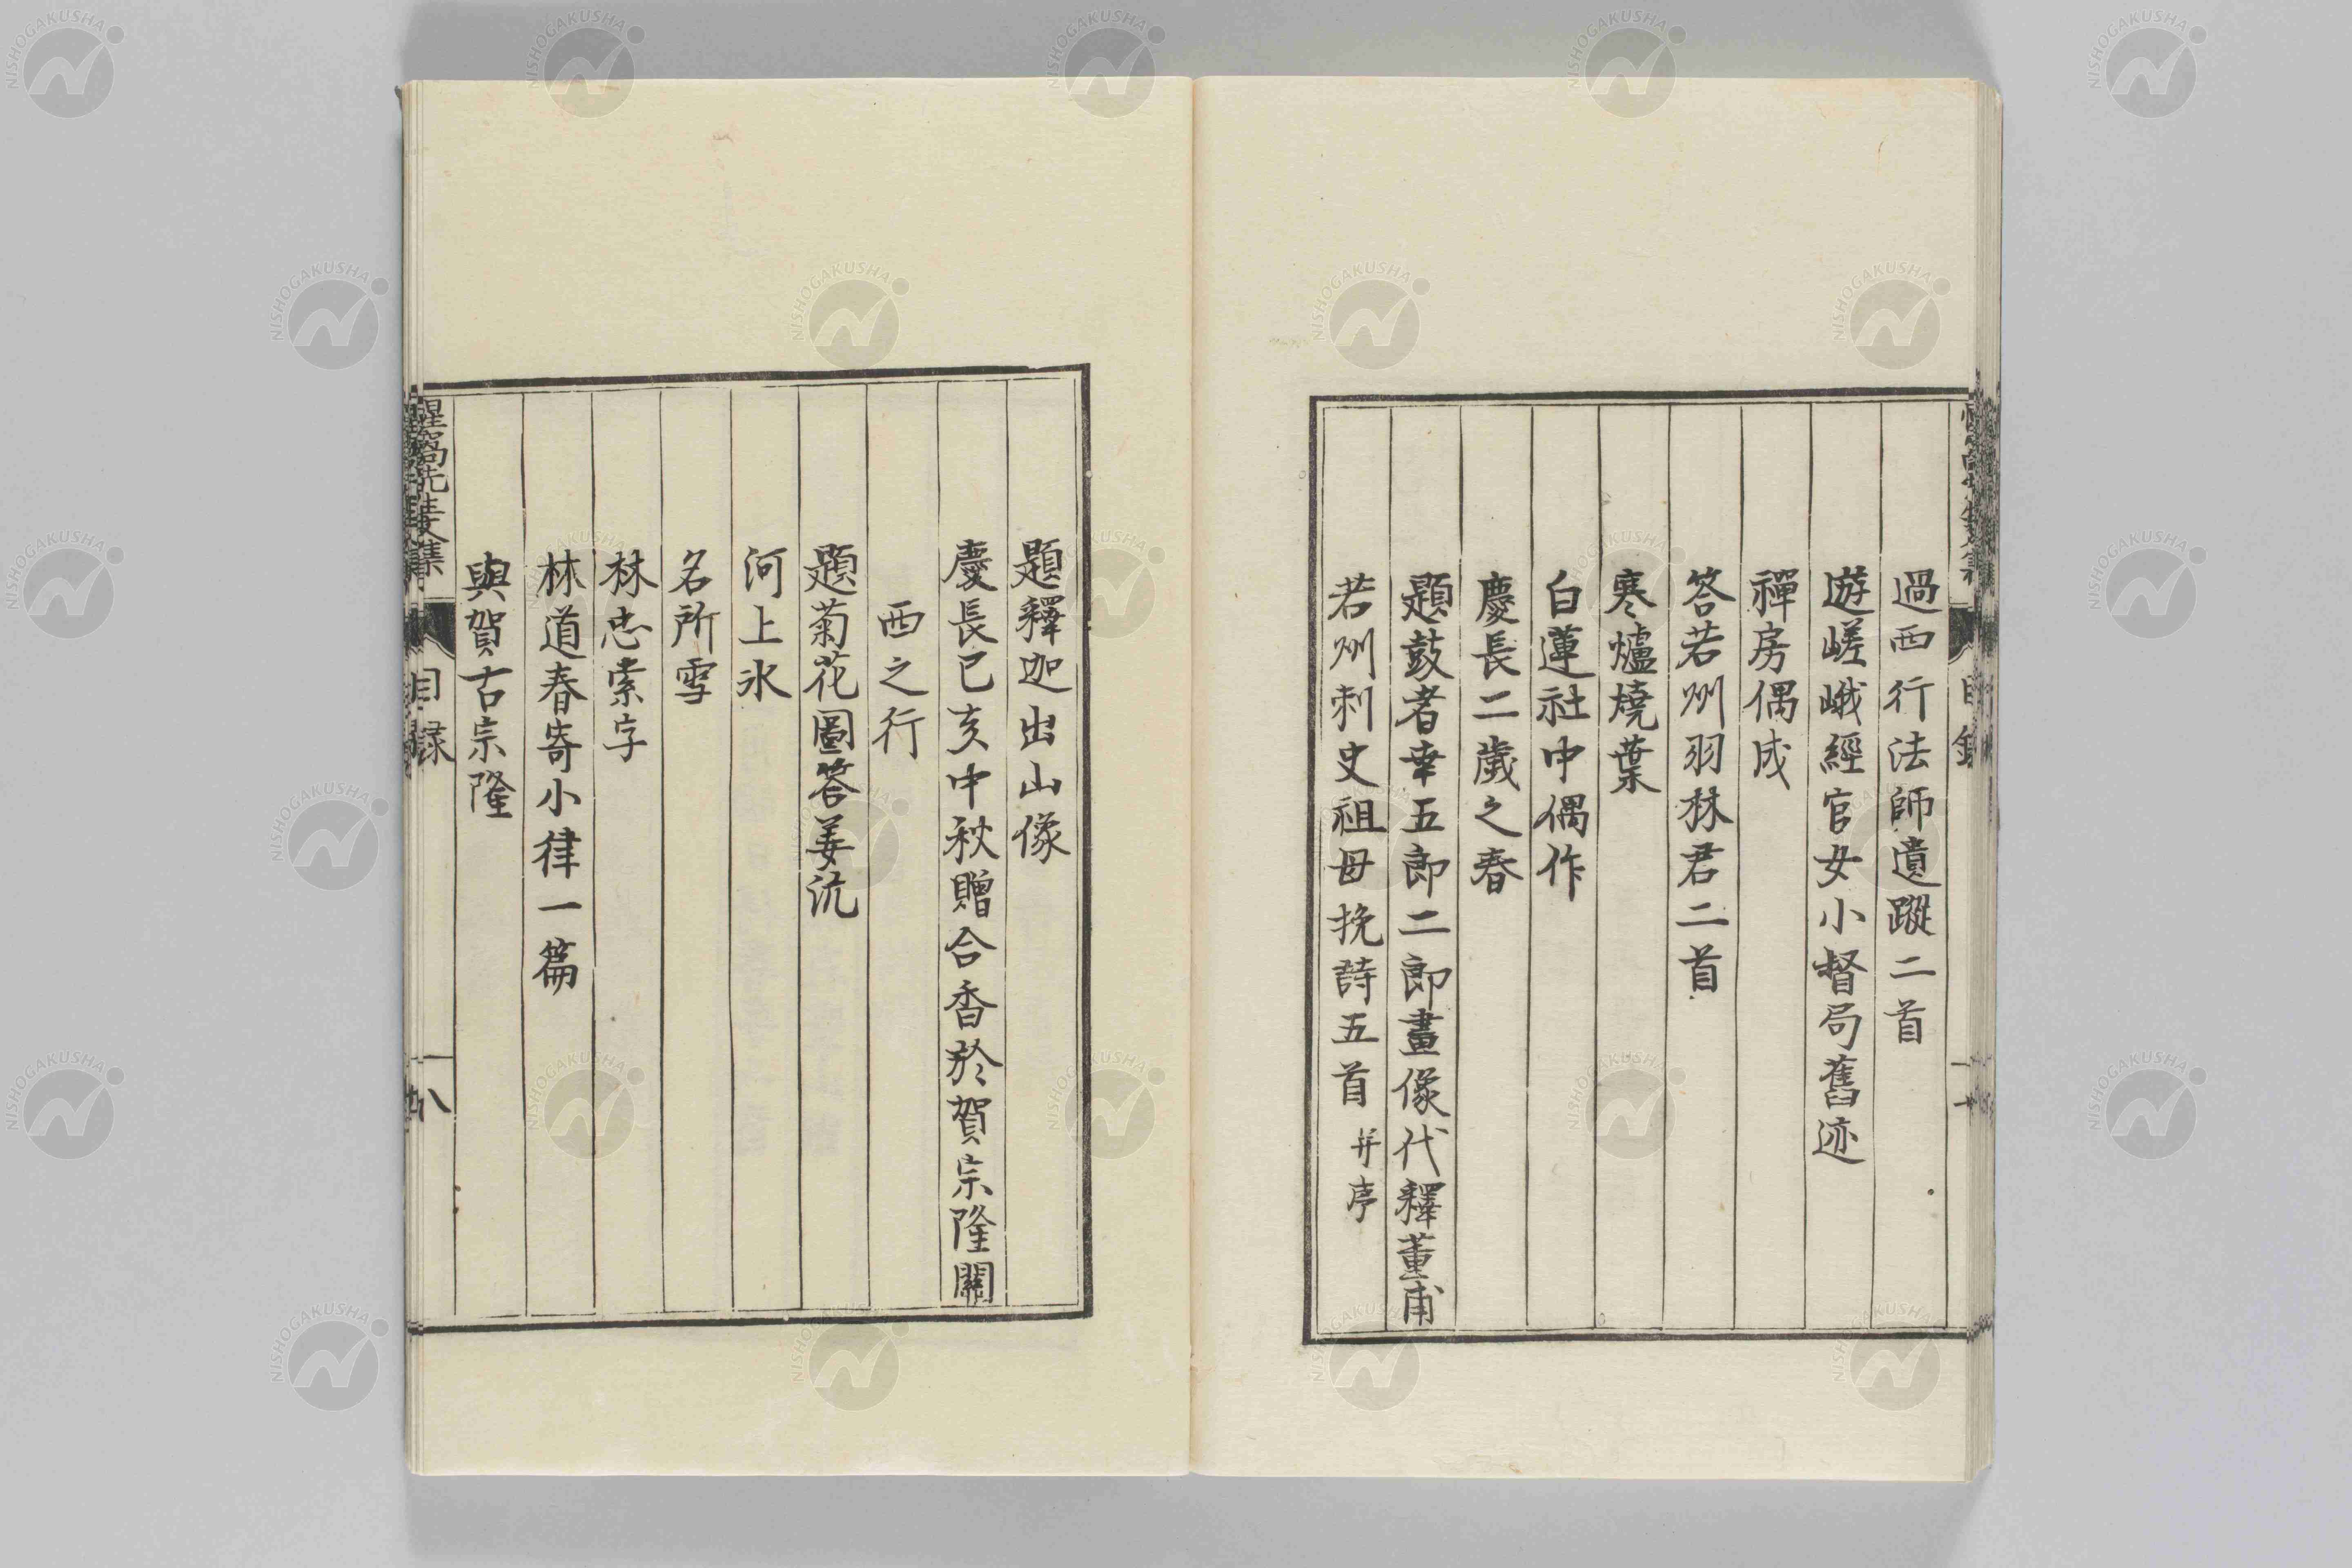 過西行法師遺蹤二首
遊嵯峨經官女小督局舊迹
禪房偶成
答若州羽林君二首
寒爐燒葉
白蓮社中偶作
慶長二歲之春
題鼓者幸五郎二郎畫像代釋董甫
若州刺史祖母挽詩五首 并序
題釋迦出山像
慶長已亥中秋贈合香於賀宗隆關
西之行
題菊花圖答姜沆
河上氷
名所雪
林忠索字
林道春寄小律一篇
與賀古宗隆
目録
八
NISHOGAKUSHA